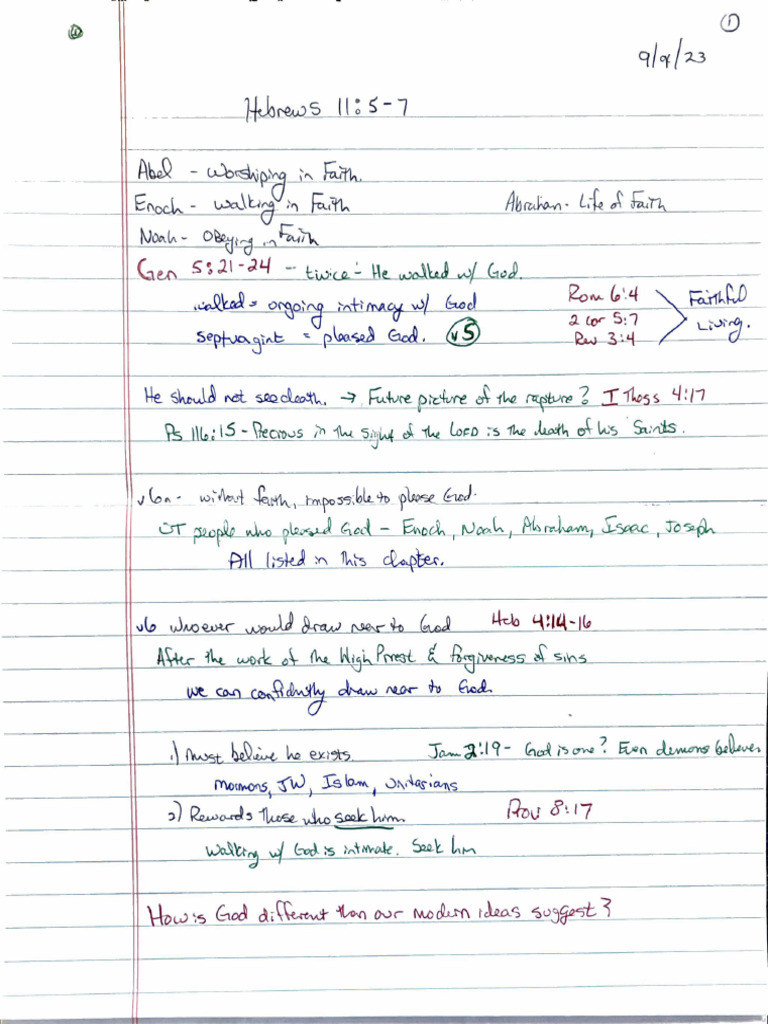 ①
9/9/23
Hebrews 11:5-7
Abel - Worshiping in Faith.
Enoch - walking in Faith Abraham - Life of Faith
Noah - Obeying in Faith
Gen 5:21-24 - twice - He walked w/ God.
walked = ongoing intimacy w/ God Rom 6:4 Faithful
septuagint = pleased God. v5 2 Cor 5:7 Living.
Rev 3:4
He should not see death. → Future picture of the rapture? I Thess 4:17
Ps 116:15 - Precious in the sight of the LORD is the death of his Saints.
v6a - without faith, impossible to please God.
OT people who pleased God - Enoch, Noah, Abraham, Isaac, Joseph
All listed in this chapter.
v6 whoever would draw near to God Heb 4:14-16
After the work of the High Priest & forgiveness of sins
we can confidently draw near to God.
1.) Must believe he exists. Jam 2:19 - God is one? Even demons believe
Mormons, JW, Islam, Unitarians
2) Rewards those who seek him. Prov 8:17
Walking w/ God is intimate. Seek him
How is God different than our modern ideas suggest?